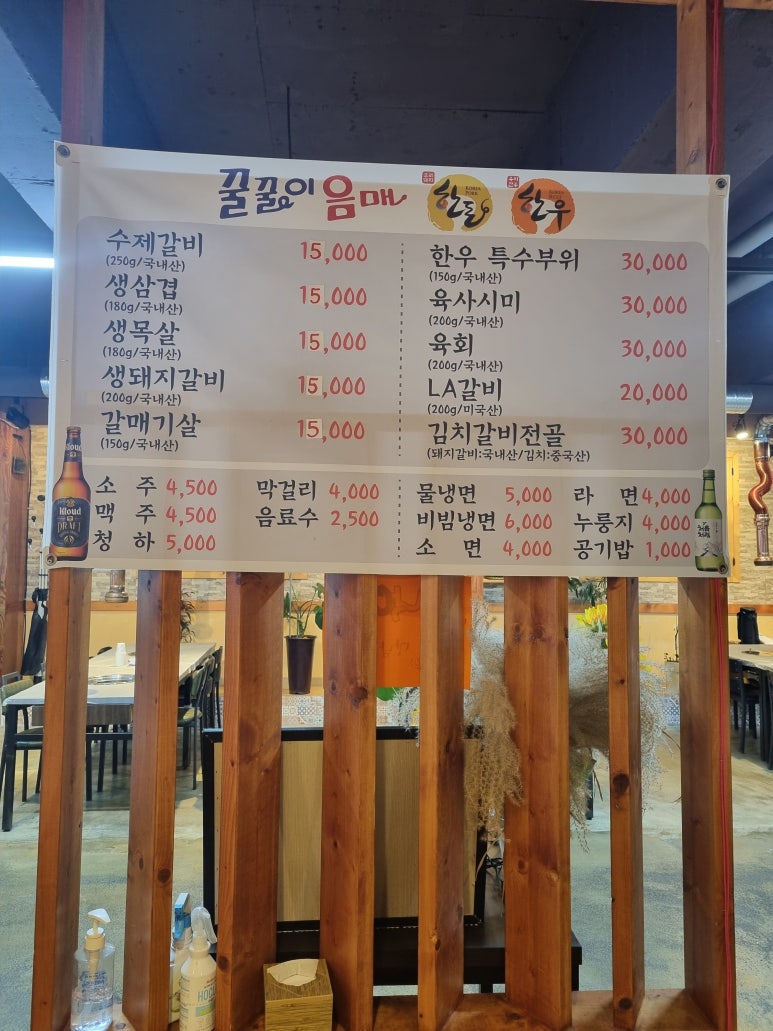 꿀꿀이 음매 한돈 KOREA PORK 한우
수제갈비 15,000
(250g/국내산)
생삼겹 15,000
(180g/국내산)
생목살 15,000
(180g/국내산)
생돼지갈비 15,000
(200g/국내산)
갈매기살 15,000
(150g/국내산)
한우 특수부위 30,000
(150g/국내산)
육사시미 30,000
(200g/국내산)
육회 30,000
(200g/국내산)
LA갈비 20,000
(200g/미국산)
김치갈비전골 30,000
(돼지갈비:국내산/김치:중국산)
소 주 4,500
맥 주 4,500
청 하 5,000
막걸리 4,000
음료수 2,500
물냉면 5,000
비빔냉면 6,000
소 면 4,000
라 면 4,000
누룽지 4,000
공기밥 1,000
Kloud
DRAFT